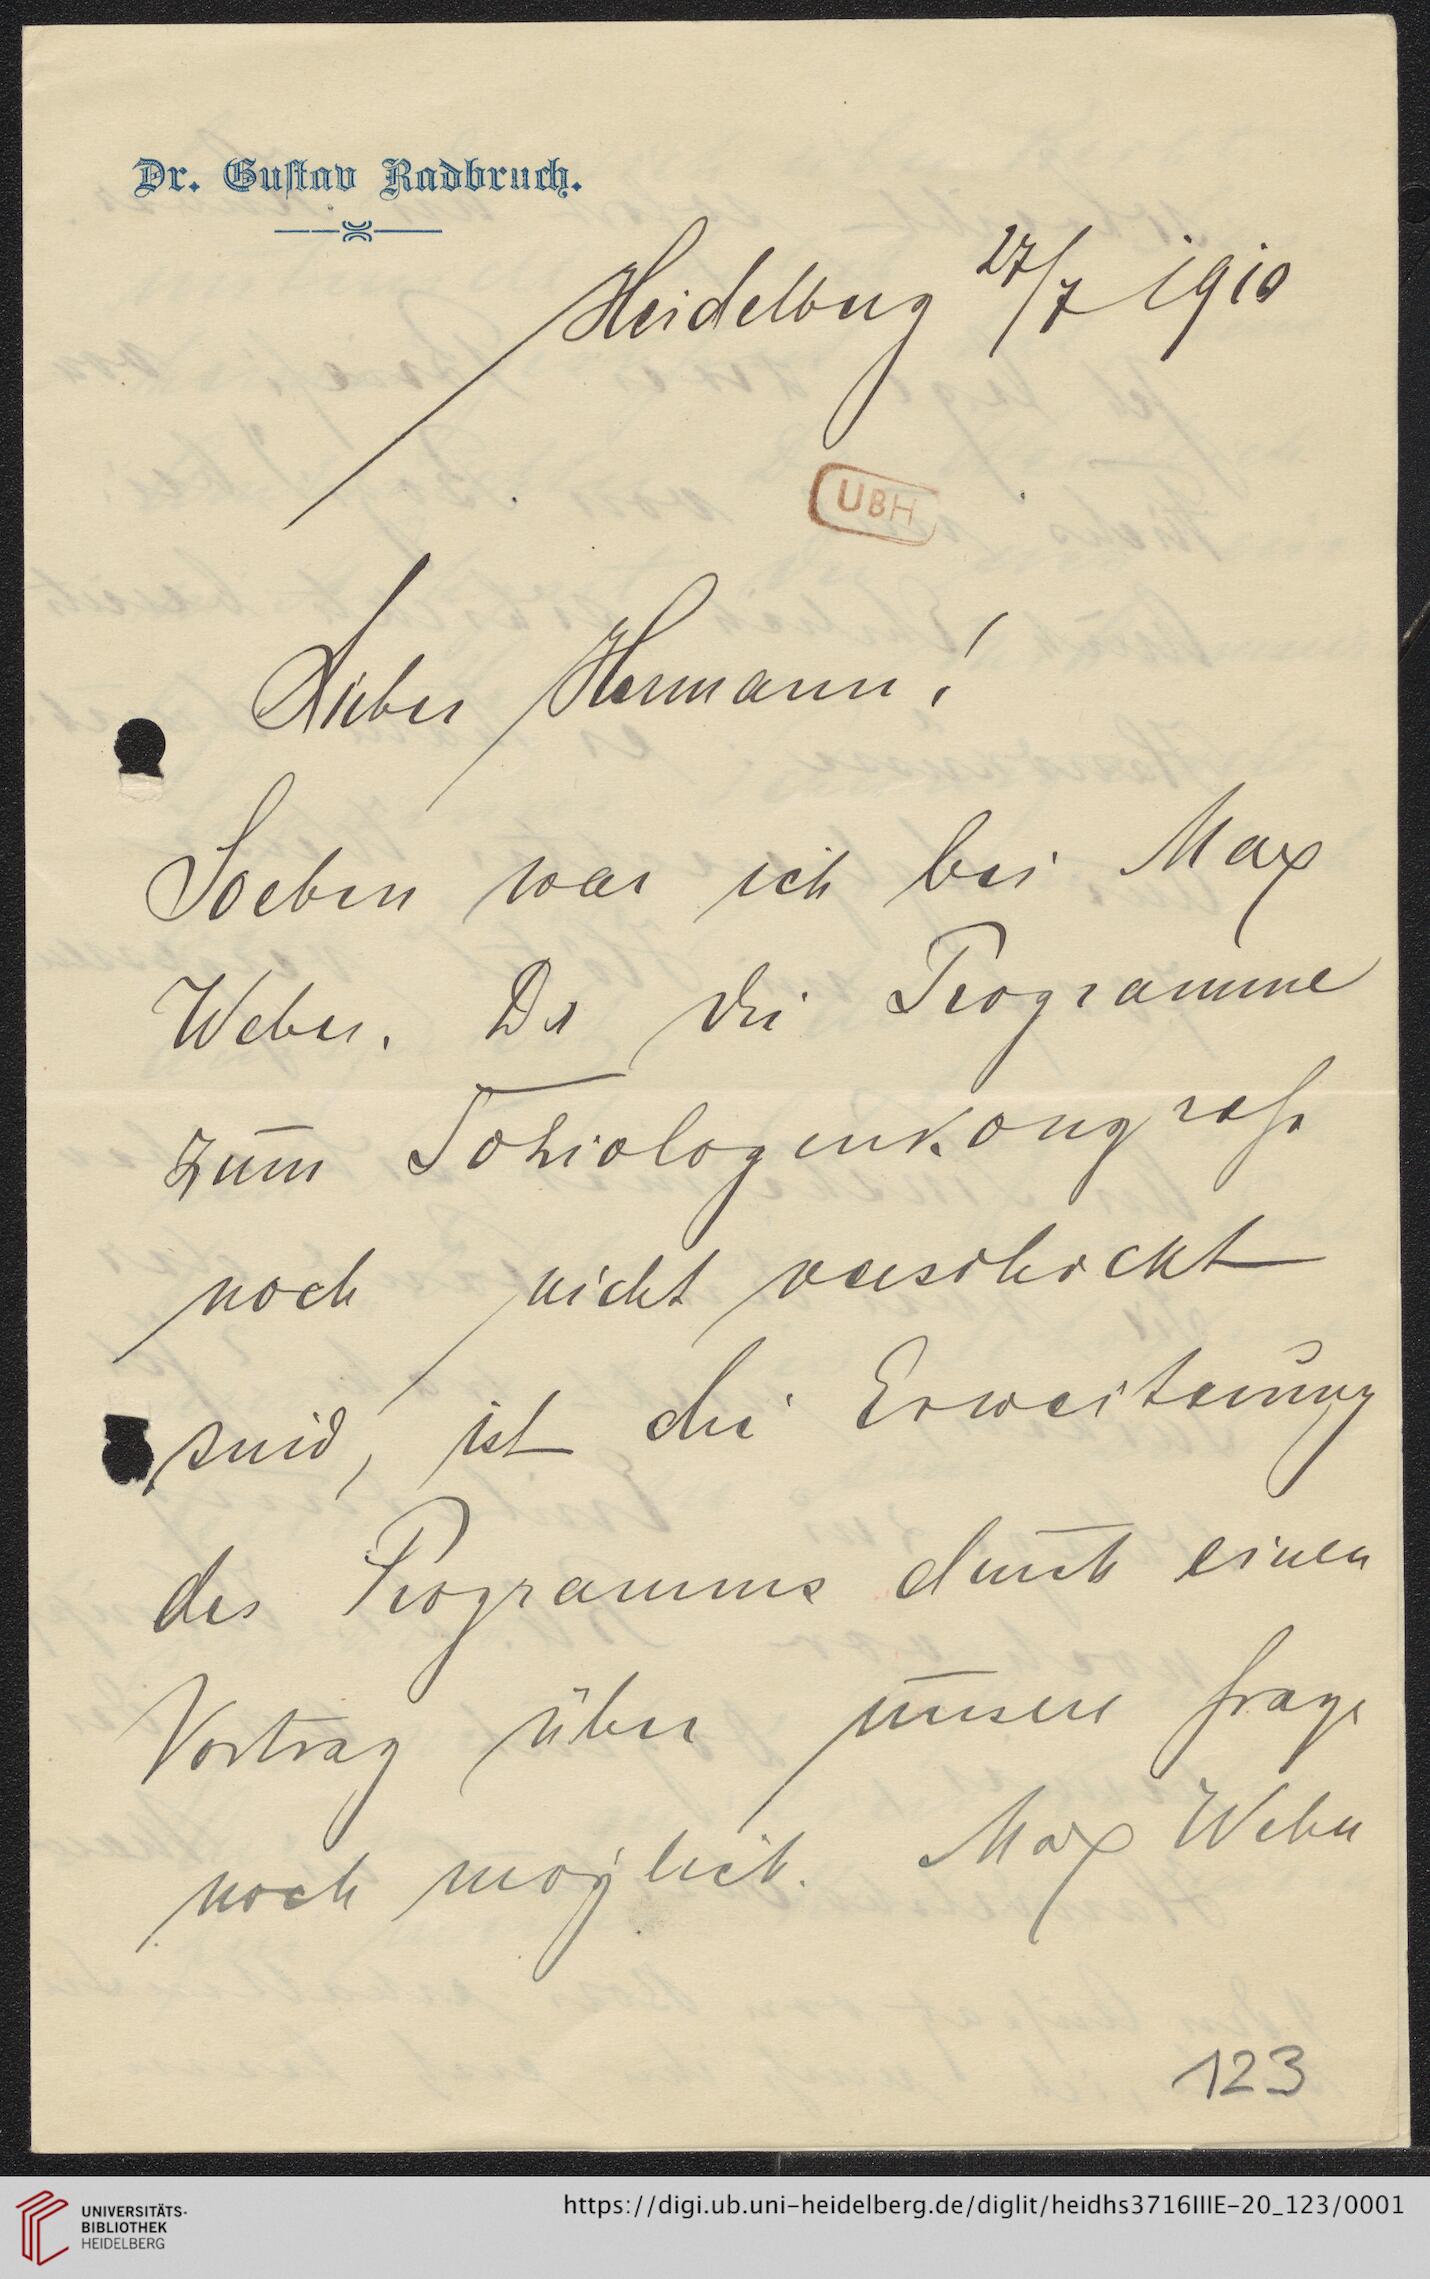 Dr. Gustav Radbruch.
Heidelberg 27/7 1910
UBH
Lieber Hermann!
Soeben war ich bei Max
Weber. Da die Programme
zum Soziologenkongress
noch nicht verschickt
sind, ist die Erweiterung
des Programms durch einen
Vortrag über unsere Frage
noch möglich. Max Weber
123
UNIVERSITÄTS-
BIBLIOTHEK
HEIDELBERG
https://digi.ub.uni-heidelberg.de/diglit/heidhs3716IIIE-20_123/0001